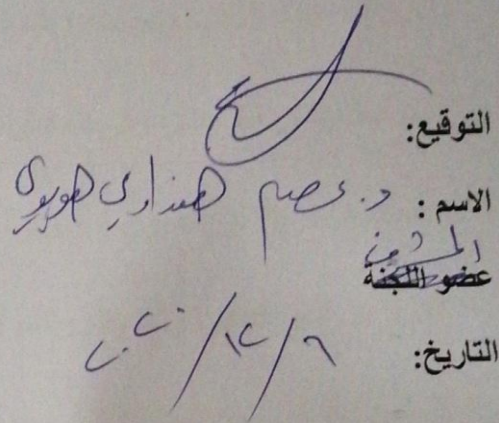 التوقيع:
الاسم : د. عصام هنداوي هويدي
المشرف
عضو اللجنة
التاريخ: ٦/١٢/٢٠٢٠